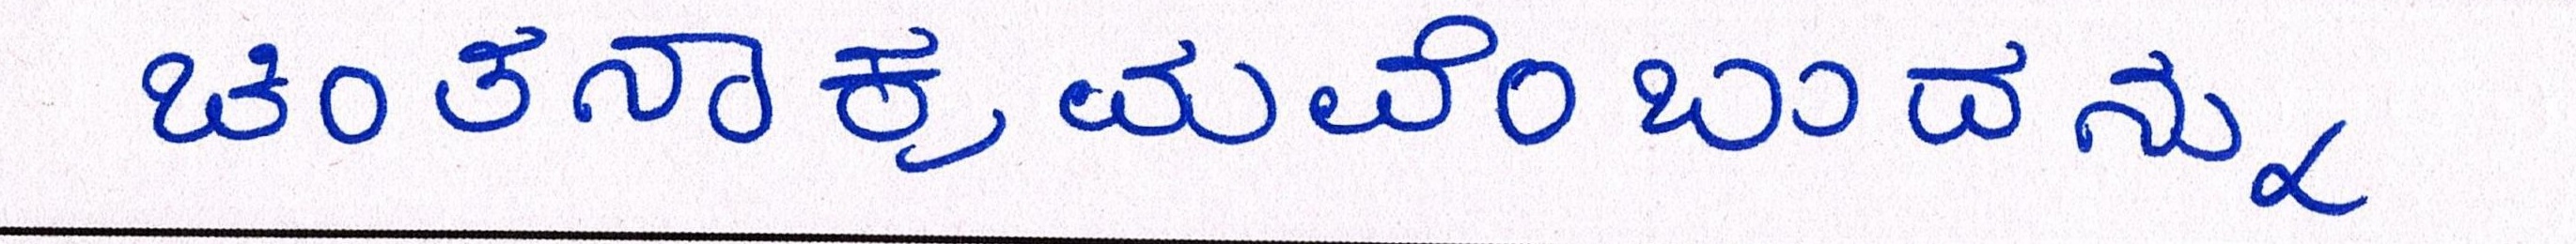 ಚಿಂತನಾಕ್ರಮವೆಂಬುದನ್ನು